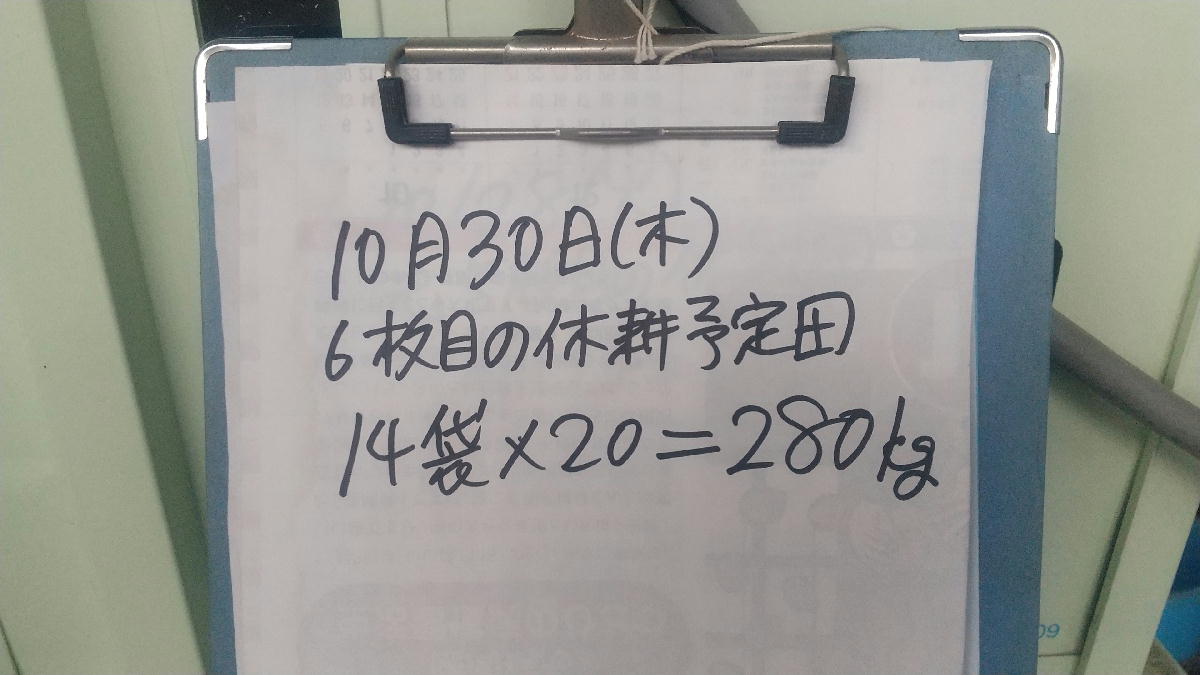 10月30日(木)
6枚目の休耕予定田
14袋×20=280kg
09